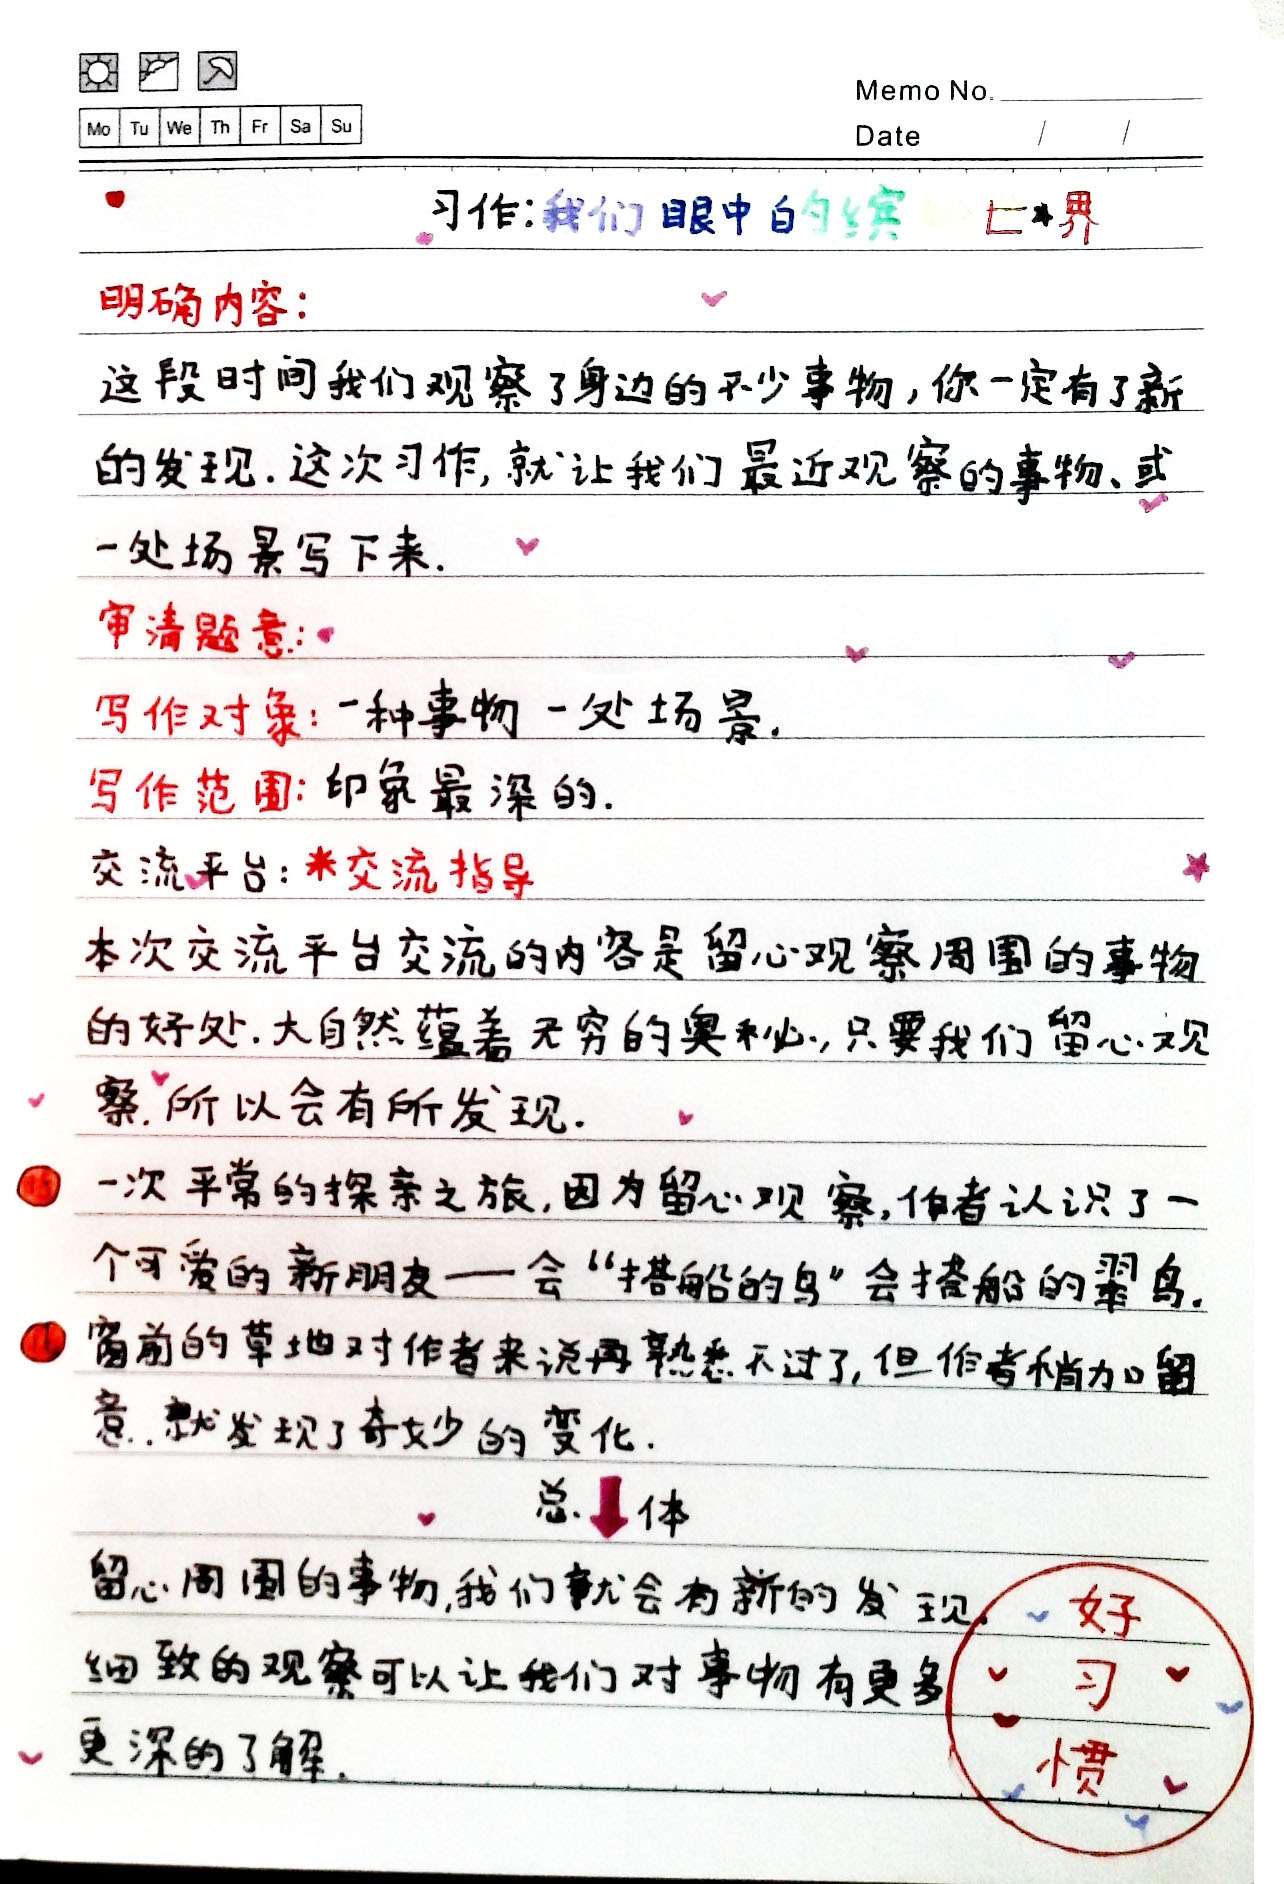 Memo No.
Mo Tu We Th Fr Sa Su
Date / /
习作:我们眼中的缤 世界
明确内容:
这段时间我们观察了身边的不少事物,你一定有了新
的发现.这次习作,就让我们最近观察的事物、或
一处场景写下来.
审清题意:
写作对象:一种事物一处场景.
写作范围:印象最深的.
交流平台:*交流指导
本次交流平台交流的内容是留心观察周围的事物
的好处.大自然蕴着无穷的奥秘.,只要我们留心观
察.所以会有所发现.
一次平常的探亲之旅,因为留心观察,作者认识了一
个可爱的新朋友——会“搭船的鸟”会搭船的翠鸟.
窗前的草地对作者来说再熟悉不过了,但作者稍加留
意..就发现了奇妙的变化.
总.体
留心周围的事物,我们就会有新的发现.
细致的观察可以让我们对事物有更多
更深的了解.
好
习
惯